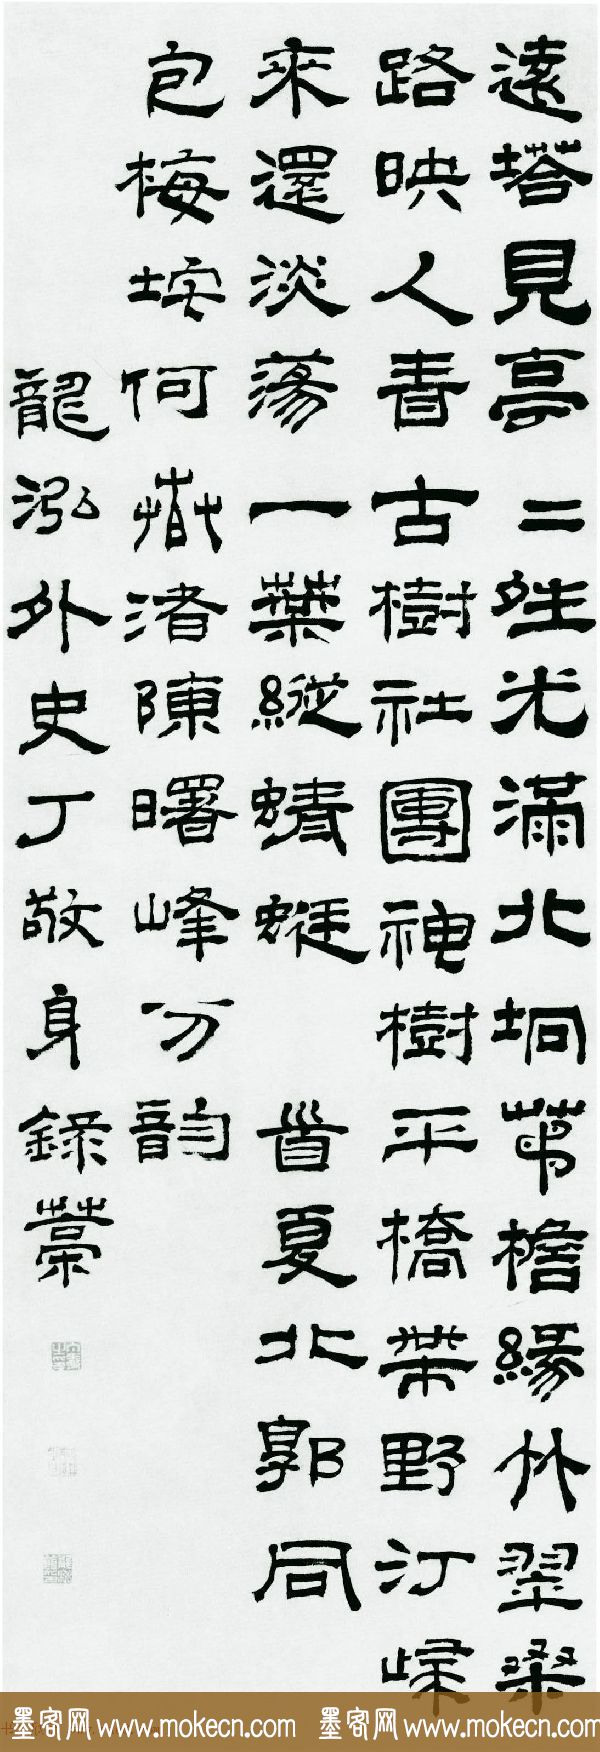 遠塔見亭二夝光滿北坰茆檐緣竹翠桑
路映人青古樹社團神樹平橋帶野汀歸
來還淡蕩一葉縱蜻蜓 首夏北郭同
包梅垞何渚陳曙峰分韵
龍泓外史丁敬身錄藁
墨客网 www.mokecn.com 墨客网 www.mokecn.com